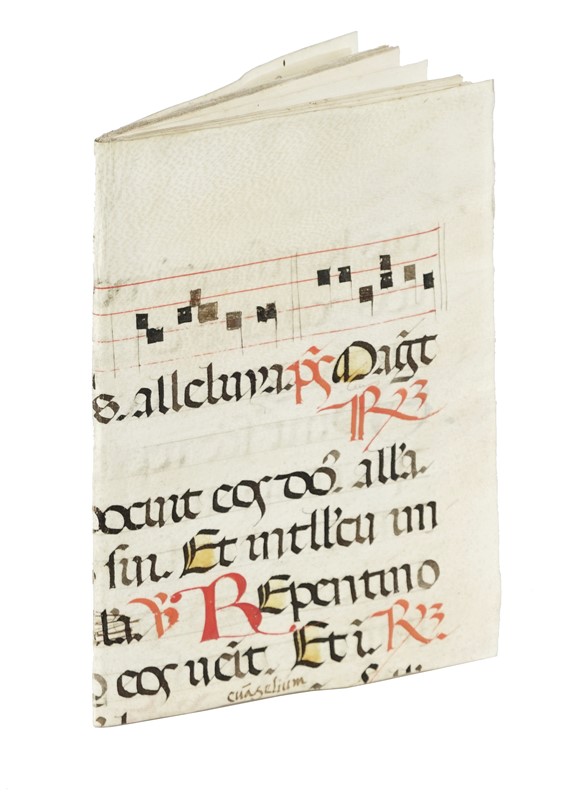 s. alleluya. ps Magt
R
docuit eos dos. alla.
sui. Et intllcu in
lla. V Repentino
eos ueit. Et i. R
euāgelium